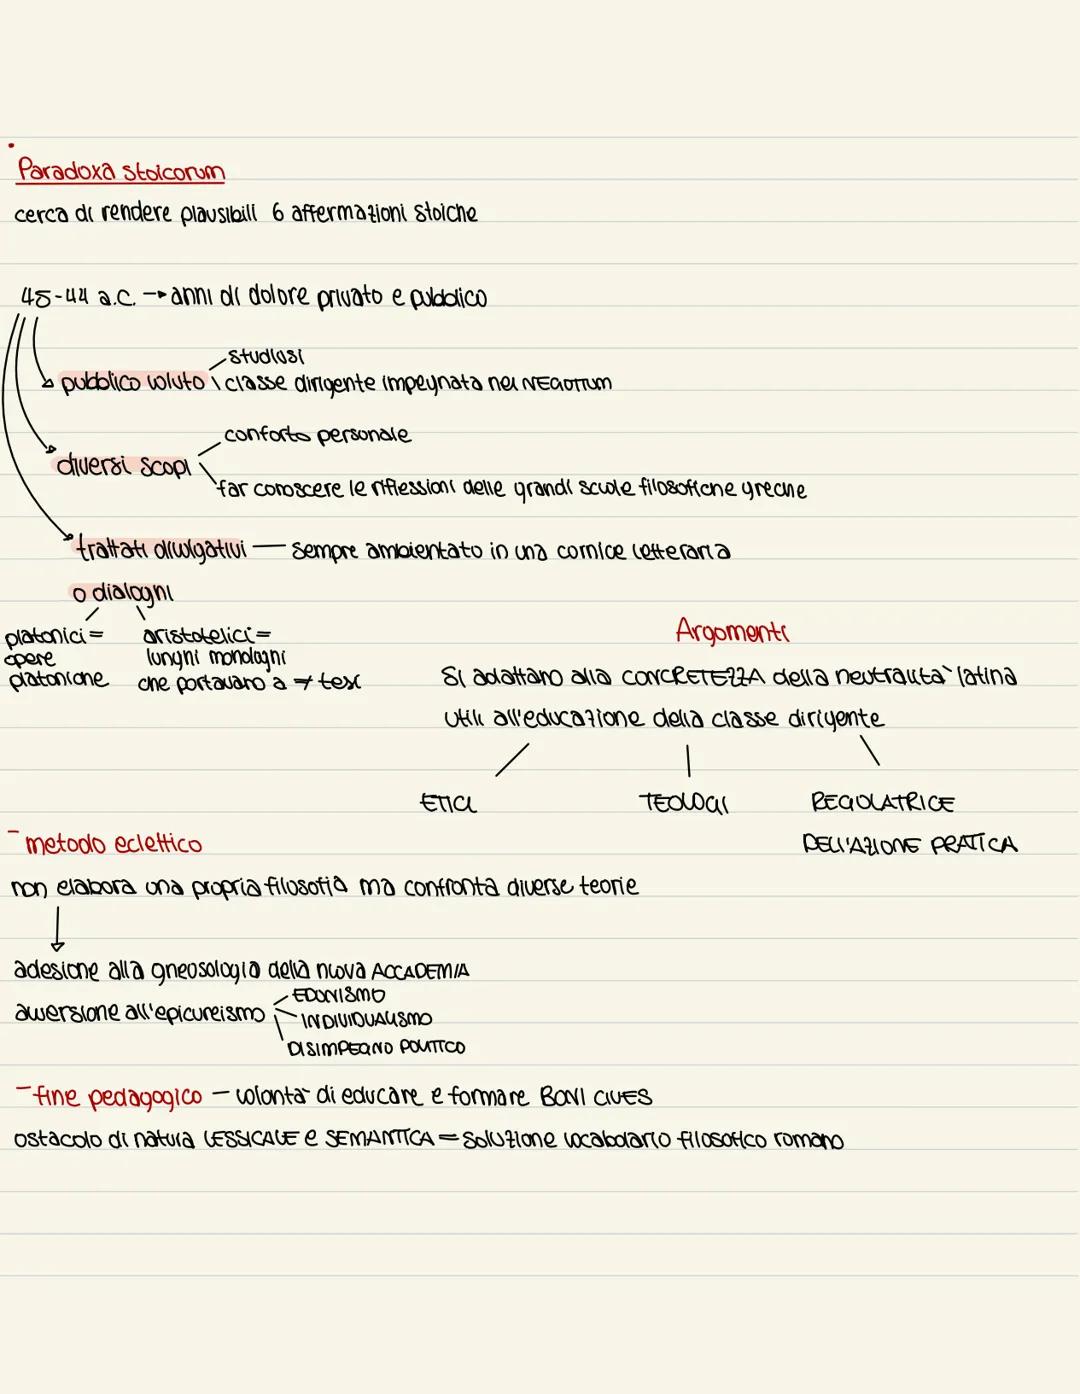 Paradoxa stoicorum
cerca di rendere plausibili 6 affermazioni stoiche
45-44 a.C. → anni di dolore privato e pubblico
studiosi
pubblico voluto \ classe dirigente impegnata nei NEGOTIUM
conforto personale
diversi scopi
far conoscere le riflessioni delle grandi scuole filosofiche greche
trattati divulgativi — sempre ambientato in una cornice letteraria
o dialoghi
platonici =
opere
platoniche
aristotelici =
lunghi monologhi
che portavano a ≠ tesi
Argomenti
Si adattano alla CONCRETEZZA della neutralità latina
utili all'educazione della classe dirigente
ETICI
TEOLOGI
REGOLATRICE
DELL'AZIONE PRATICA
- metodo eclettico
non elabora una propria filosofia ma confronta diverse teorie
adesione alla gneosologia della nuova ACCADEMIA
EDONISMO
avversione all'epicureismo
INDIVIDUALISMO
DISIMPEGNO POLITICO
- fine pedagogico – volontà di educare e formare BONI CIVES
ostacolo di natura LESSICALE e SEMANTICA = soluzione vocabolario filosofico romano